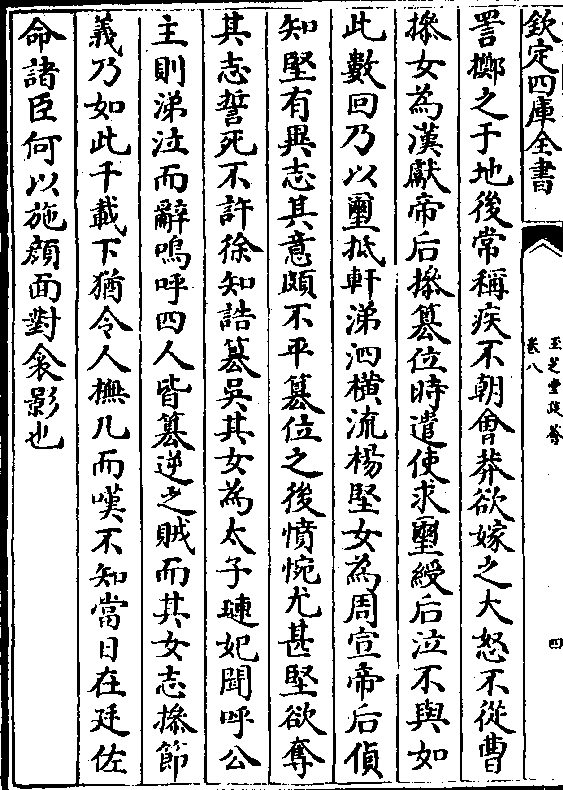 欽定四庫全書
玉芝堂談薈
卷八
四
詈擲之于地後常稱疾不朝會莽欲嫁之大怒不從曹
操女為漢獻帝后操簒位時遣使求璽綬后泣不與如
此數回乃以璽抵軒涕泗橫流楊堅女為周宣帝后偵
知堅有異志其意頗不平簒位之後憤惋尤甚堅欲奪
其志誓死不許徐知誥簒吳其女為太子璉妃聞呼公
主則涕泣而辭嗚呼四人皆簒逆之賊而其女志操節
義乃如此千載下猶令人撫几而嘆不知當日在廷佐
命諸臣何以施顔面對衾影也